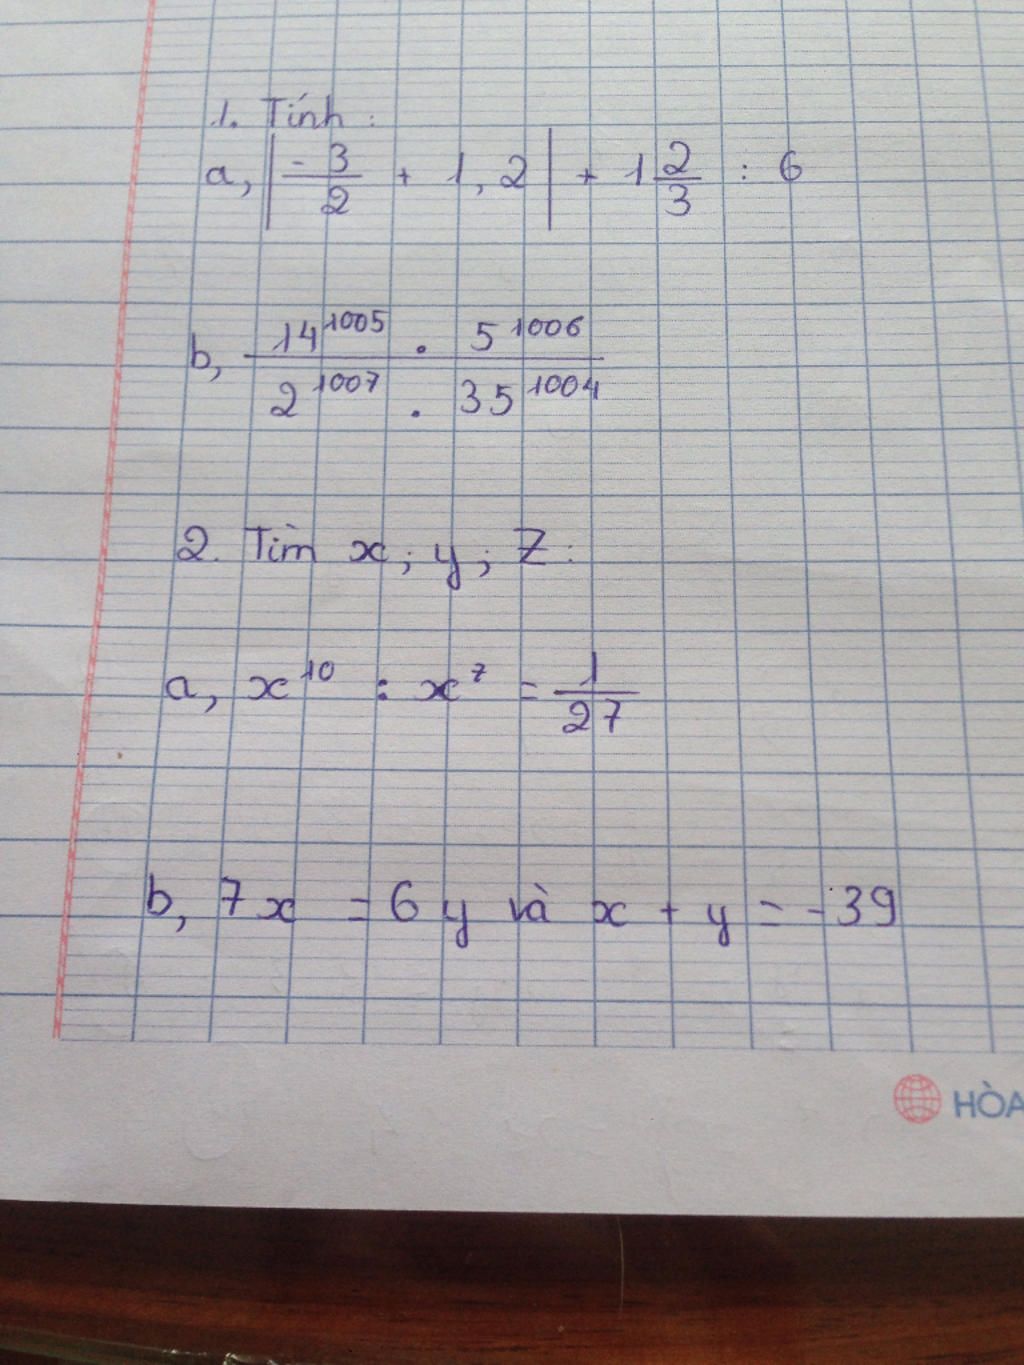 1. Tính:
a, |-3/2 + 1,2| + 1 2/3 : 6
b, 14^1005 . 5^1006 / 2^1007 . 35^1004
2. Tìm x; y; Z:
a, x^10 : x^7 = 1/27
b, 7x = 6y và x + y = -39
HÒA